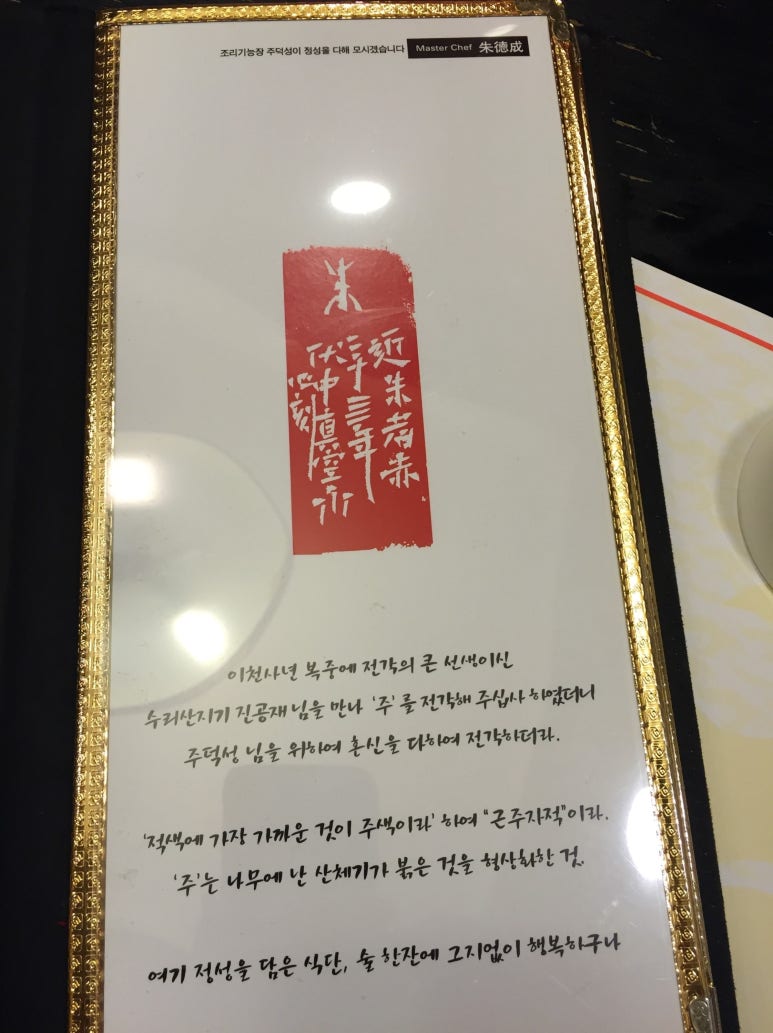 조리기능장 주덕성이 정성을 다해 모시겠습니다 Master Chef 朱德成
朱
近朱者赤
年
伏中真空
心刻
이천사년 복중에 전각의 큰 선생이신
수리산지기 진공재 님을 만나 '주'를 전각해 주십사 하였더니
주덕성 님을 위하여 혼신을 다하여 전각하더라.
'적색에 가장 가까운 것이 주색이라' 하여 "근주자적"이라.
'주'는 나무에 난 산체기가 붉은 것을 형상화한 것.
여기 정성을 담은 식단, 술 한잔에 그지없이 행복하구나